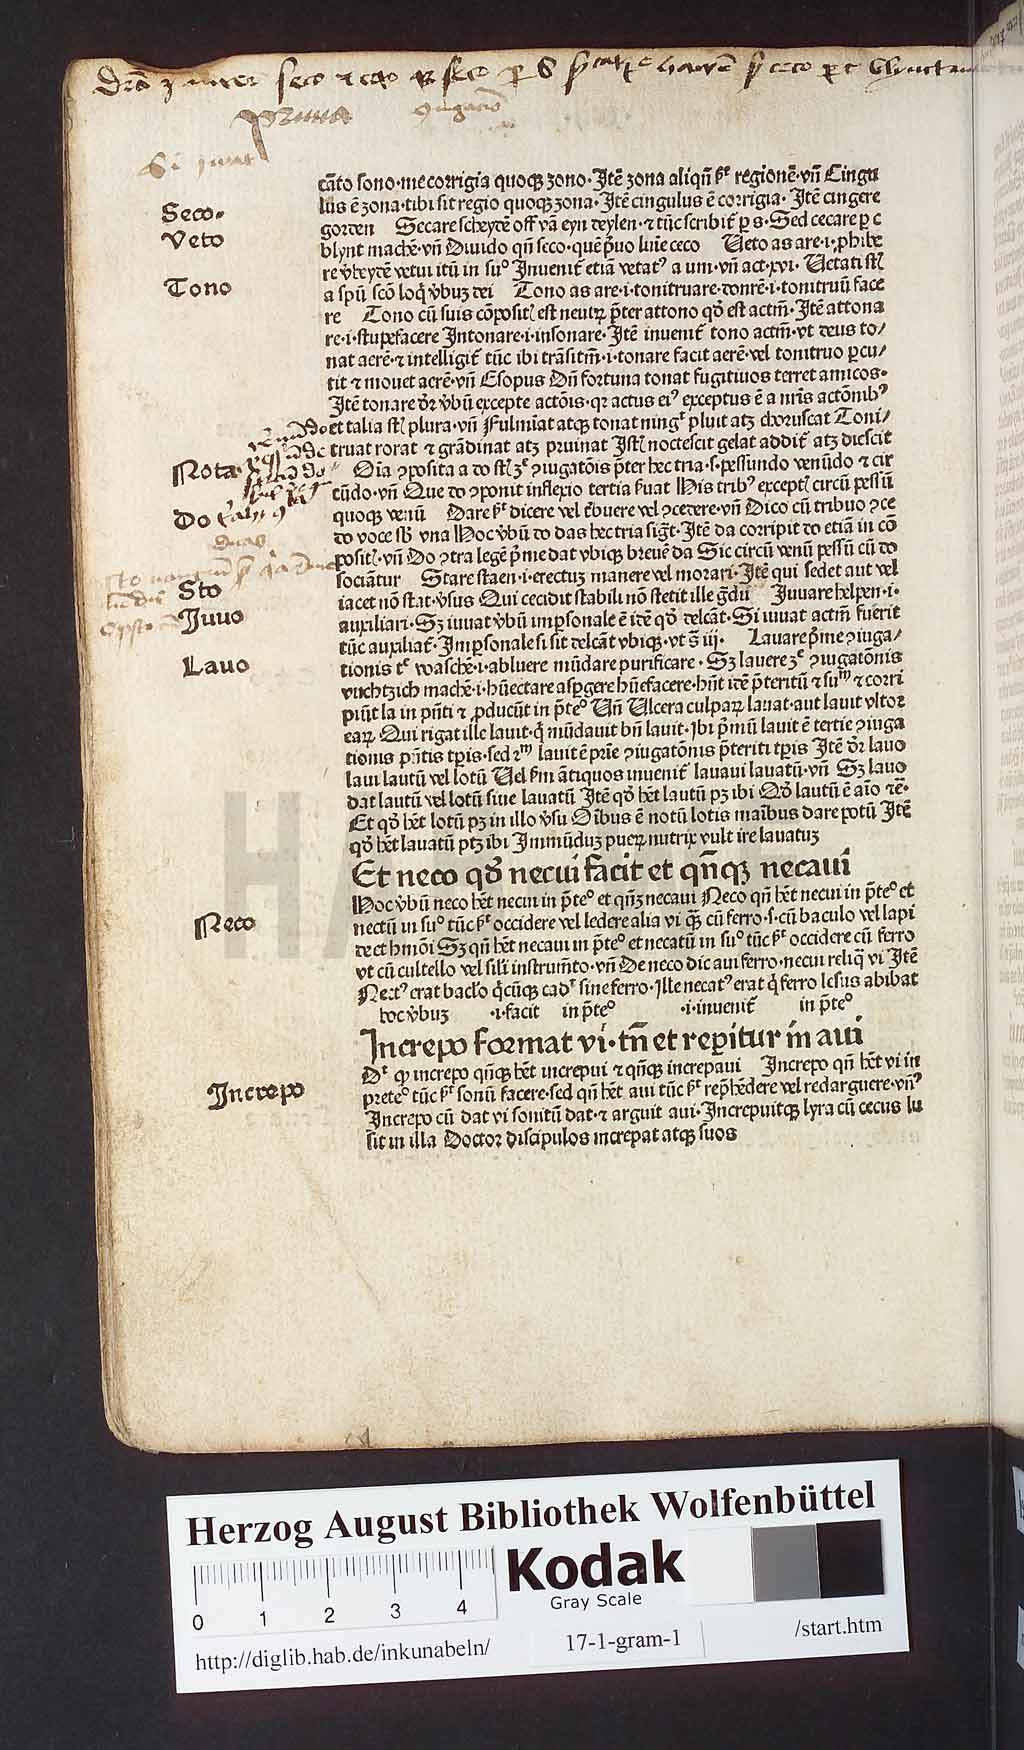 Si iuvat
cāto sono·me corrigia quoqꝫ zono·Itē zona aliqn̄ sꝫ regionē·vn̄ Cingu
Seco·
lus ē zona·tibi sit regio quoqꝫ zona·Itē cingulus ē corrigia·Itē cingere
gorden Secare scheydē off vā eyn deylen·⁊ tūc scribit̄ ꝑ s·Sed cecare ꝑ c
Veto
blynt machē·vn̄ Diuido qn̄ seco·quē p̄uo lūie ceco Veto as are·i·ꝓhibe
re v̄beydē vetui itū in suº Inuenit̄ etiā vetatꝰ a um·vn̄ act·xvi·Uetati sūt
Tono
a spū scō loq̄ v̄buꝫ dei Tono as are·i·tonitruare·donrē·i·tonitruū face
re Tono cū suis cōposit̄ est neutꝝ p̄ter attono qd̄ est actm̄·Itē attona
re·i·stupefacere Intonare·i·insonare·Itē inuenit̄ tono actm̄·vt deus to/
nat aerē·⁊ intelligit̄ tūc ibi trāsitm̄·i·tonare facit aerē·vel tonitruo ꝑcu/
tit ⁊ mouet aerē·vn̄ Esopus Dū fortuna tonat fugitiuos terret amicos·
Itē tonare dr̄ v̄bū excepte actōis·qꝛ actus eiꝰ exceptus ē a nr̄is actōnibꝰ
et talia sūt plura·vn̄ Fulmiat atqꝫ tonat ningꝭ pluit atꝫ choruscat Toni/
truat rorat ⁊ grādinat atꝫ pruinat Istꝫ noctescit gelat addit̄ atꝫ diescit
Nota·
Oīa ꝯposita a do sūt ꝫᵉ ꝯiugatōis p̄ter hec tria·s·pessundo venūdo ⁊ cir
cūdo·vn̄ Que do ꝯponit inflexio tertia ẜuat His tribꝰ exceptꝭ circū pessū
Do
quoqꝫ venū Dare sꝫ dicere vel t̄buere vel ꝯcedere·vn̄ Dico cū tribuo ꝯce
do voce sb̄ vna Hoc v̄bū do das hec tria sigt̄·Itē da corripit do etiā in cō
posit̄·vn̄ Do ꝯtra legē p̄me dat vbiqꝫ breuē da Sic circū venū pessū cū do
Sto
sociātur Stare staen·i·erectuꝫ manere vel morari·Itē qui sedet aut vel
iacet nō stat·v̄sus Qui cecidit stabili nō stetit ille gradu Iuuare helpen·i·
Juuo
auxiliari·Sꝫ iuuat v̄bū imꝑsonale ē idē qd̄ delcāt·Si iuuat actm̄ fuerit
tūc auxiliat̄·Imꝑsonale si sit delcāt vbiqꝫ·vt s̄ iij· Lauare p̄me ꝯiuga/
Lauo
tionis tᵉ waschē·i·abluere mūdare purificare·Sꝫ lauere ꝫᵉ ꝯiugatōnis
vuchtzich machē·i·hūectare aspgere hūefacere·hn̄t idē p̄teritū ⁊ suᵐ ⁊ corri
piūt la in pn̄ti ⁊ ꝓducūt in p̄teº Un̄ Ulcera culpaꝝ lauat·aut lauit vltor
eaꝝ Qui rigat ille lauit·q̄ mūdauit bn̄ lauit·Ibi p̄mū lauit ē tertie ꝯiuga
tionis pn̄tis tꝑis·sed ꝛᵐ lauit ē prīe ꝯiugatōnis p̄teriti tꝑis Itē dr̄ lauo
laui lautū vel lotū Vel ẜm ātiquos inuenit̄ lauaui lauatū·vn̄ Sꝫ lauo
dat lautū vel lotū siue lauatū Itē qd̄ hēt lautū pꝫ ibi Qd̄ lautū ē aīo ⁊ē·
Et qd̄ hēt lotū pꝫ in illo v̄su Oībus ē notū lotis manibus dare potū Itē
qd̄ hēt lauatū ptꝫ ibi Immūduꝫ pueꝝ nutrix vult ire lauatuꝫ
Et neco qd̄ necui facit et qn̄qꝫ necaui
Neco
Hoc v̄bū neco hēt necui in p̄teº et qn̄qꝫ necaui Neco qn̄ hēt necui in p̄teº et
nectū in suº tūc sꝫ occidere vel ledere alia vi qꝫ cū ferro·s·cū baculo vel lapi
de et hmōi Sꝫ qn̄ hēt necaui in p̄teº et necatū in suº tūc sꝫ occidere cū ferro
vt cū cultello vel sili instrum̄to·vn̄ De neco dic aui ferro·necui reliq̄ vi Itē
Nectꝰ erat bacl̄o q̄cūqꝫ cadꝭ sine ferro·Ille necatꝰ erat q̄ ferro lesus abibat
hoc v̄buꝫ ·i·facit in p̄teº ·i·inuenit̄ in p̄teº
Increpo format vi·tn̄ et reꝑitur in aui
Increpo
Dꝭ ꝙ increpo qn̄qꝫ hēt increpui ⁊ qn̄qꝫ increpaui Increpo qn̄ hēt vi in
preteº tūc sꝫ sonū facere·sed qn̄ hēt aui tūc sꝫ rep̄hēdere vel redarguere·vn̄ꝰ
Increpo cū dat vi sonitū dat·⁊ arguit aui·Increpuitqꝫ lyra cū cecus lu
sit in illa Doctor discipulos increpat atqꝫ suos
Herzog August Bibliothek Wolfenbüttel
Kodak
Gray Scale
0 1 2 3 4
http://diglib.hab.de/inkunabeln/
17-1-gram-1
/start.htm